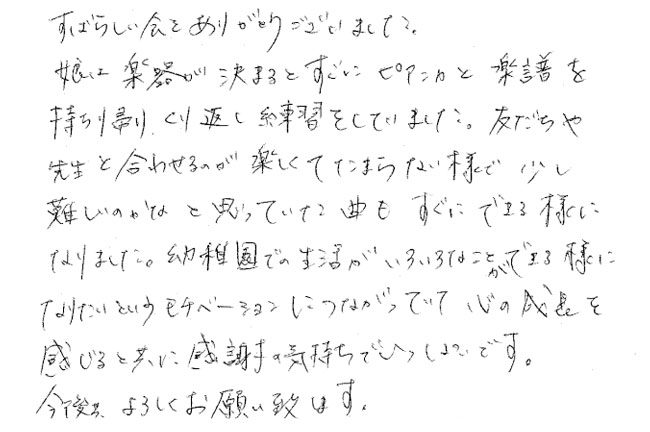 すばらしい会をありがとうございました。
娘は楽器が決まるとすぐにピアニカと楽譜を
持ち帰りくり返し練習をしていました。友だちや
先生と合わせるのが楽しくてたまらない様で少し
難しいのかなと思っていた曲もすぐにできる様に
なりました。幼稚園での生活がいろいろなことができる様に
なりたいというモチベーションにつながっていて心の成長を
感じると共に感謝の気持ちでいっぱいです。
今後共よろしくお願い致します。